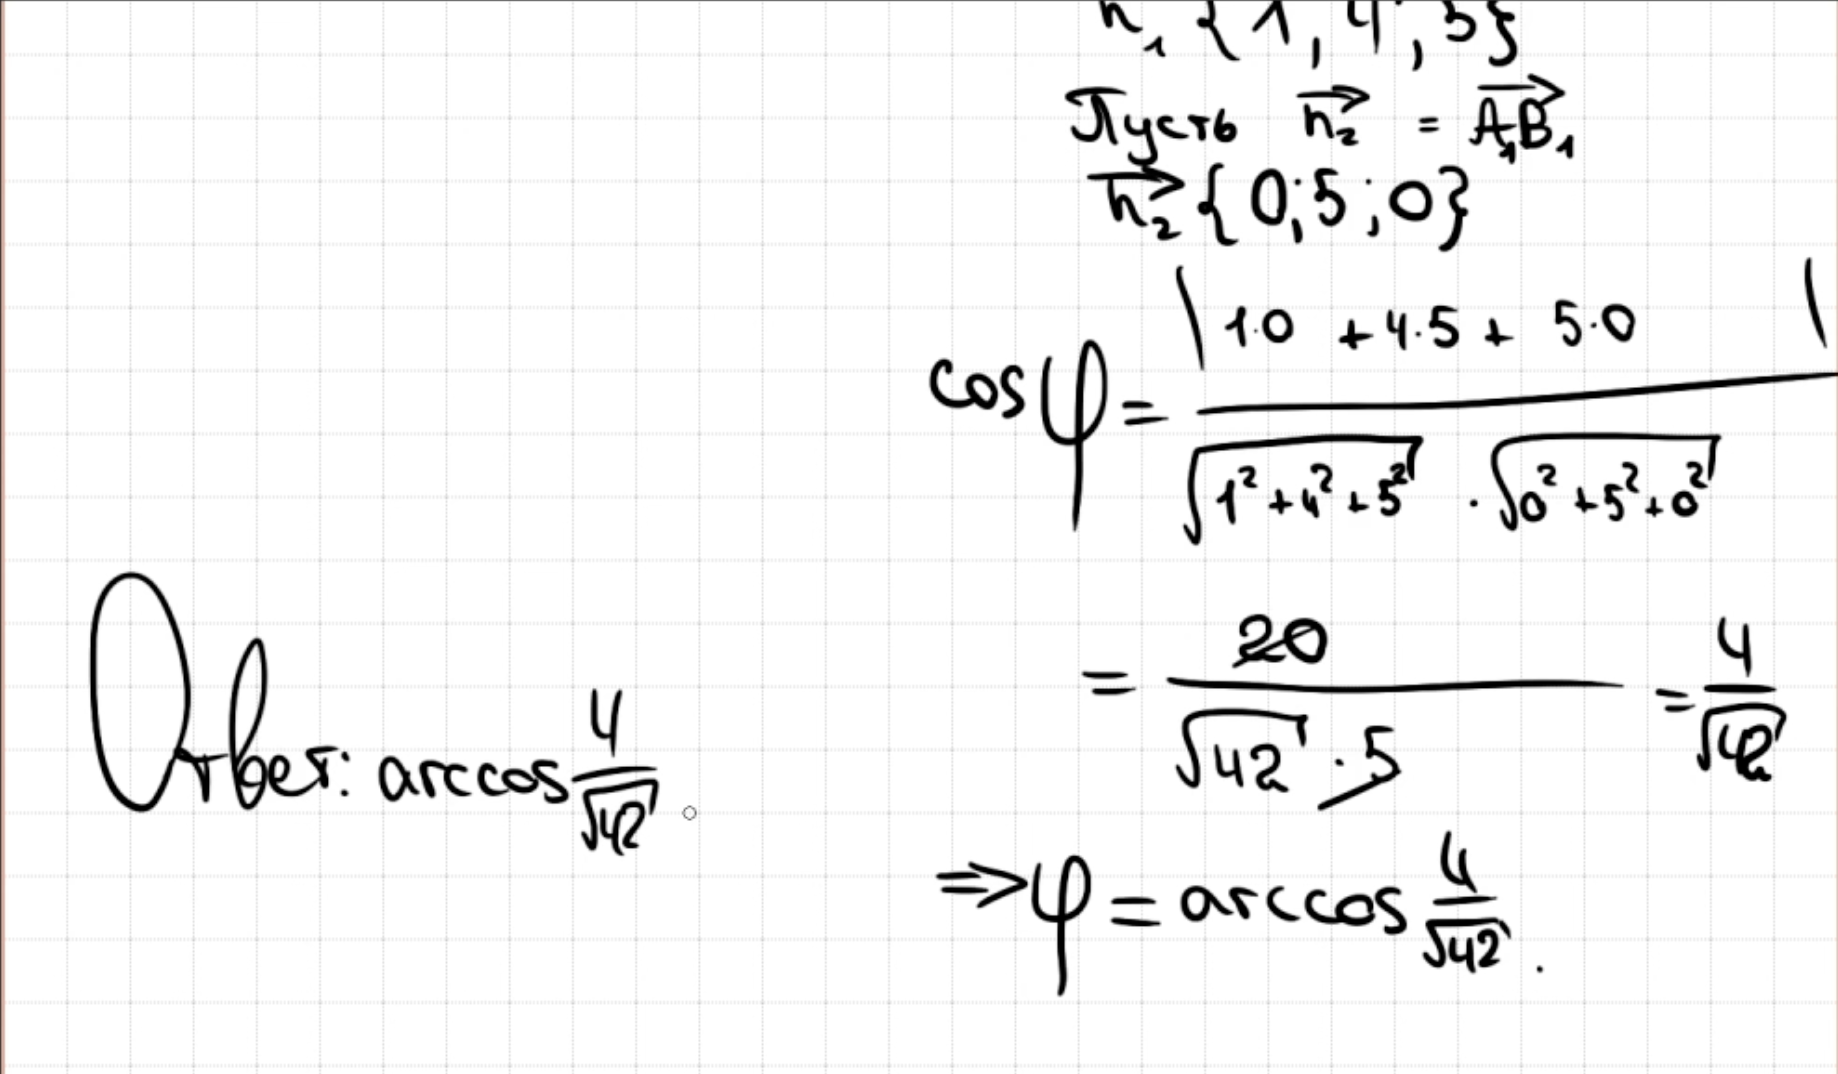 n₁ {1, 4, 5}
Пусть n₂⃗ = A₁B₁⃗
n₂⃗ {0; 5; 0}
cos φ = |1·0 + 4·5 + 5·0| / √(1² + 4² + 5²) · √(0² + 5² + 0²)
= 20 / √42 · 5 = 4 / √42
⇒ φ = arccos 4/√42.
Ответ: arccos 4/√42